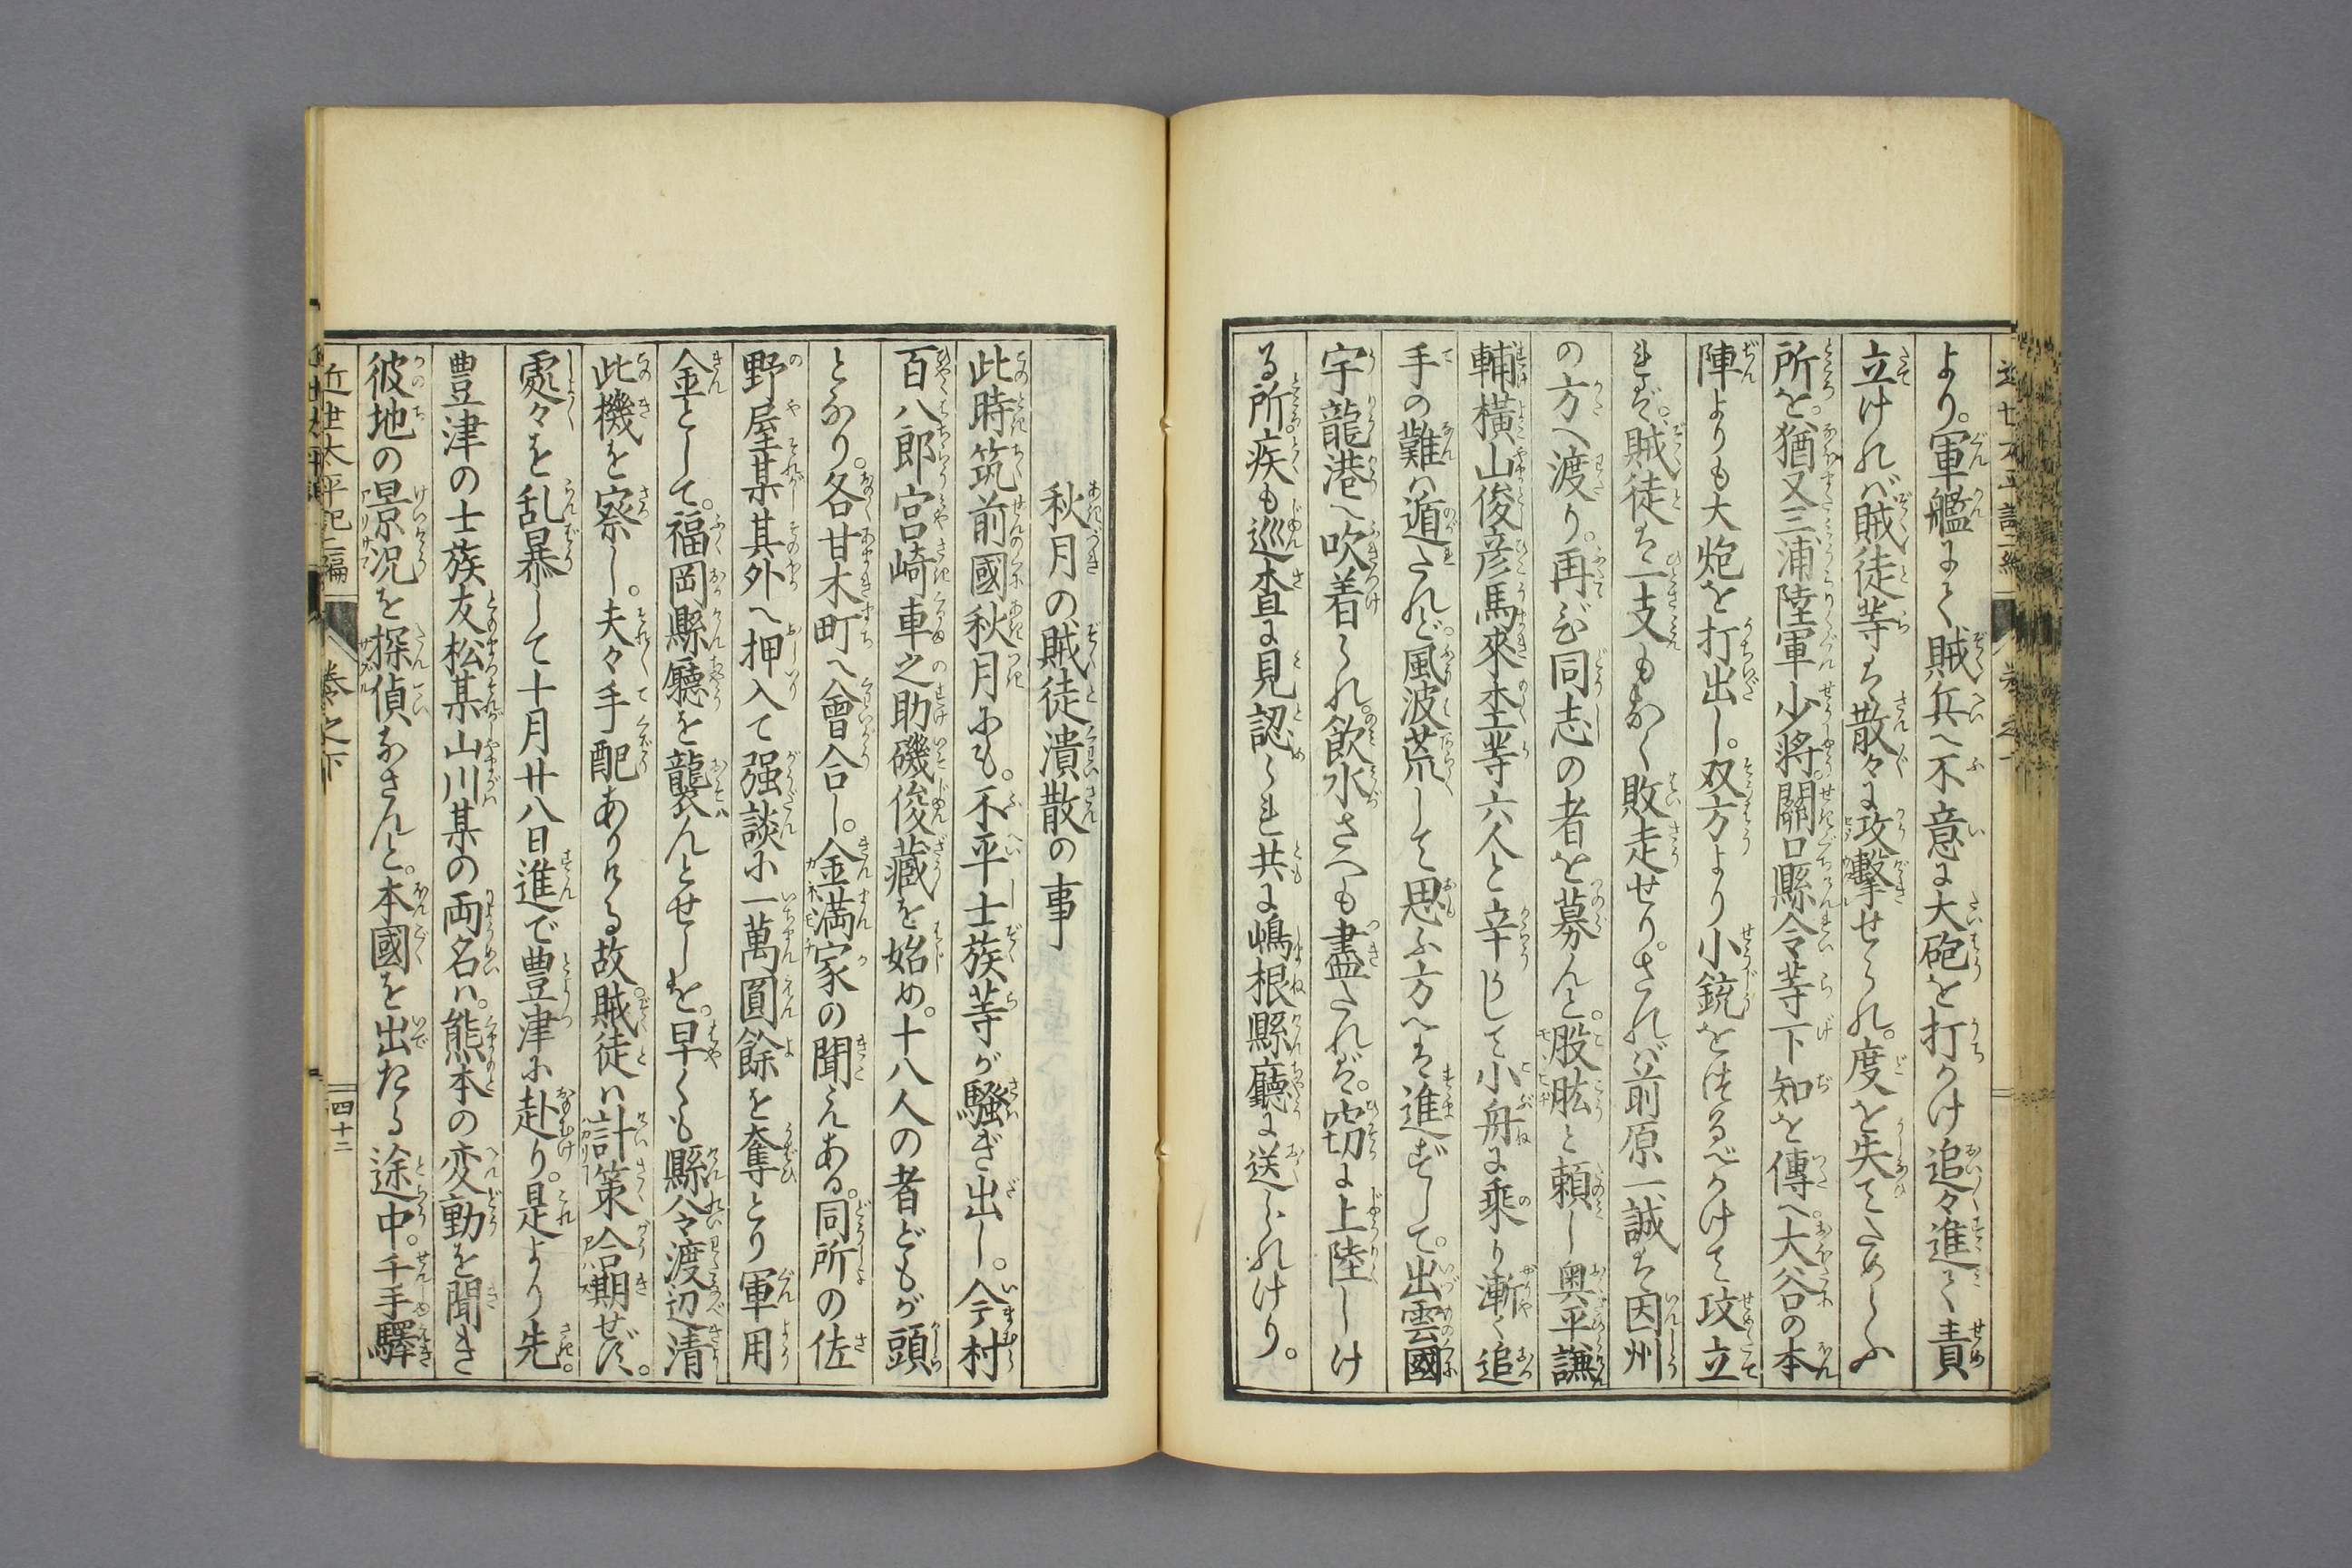 より。軍艦よく賊兵へ不意に大砲を打かけ追々進く責
立けれバ賊徒等は散々に攻撃せられ。度を失てためらふ
所を。猶又三浦陸軍少将。關口縣令等下知を傳へ。大谷の本
陣よりも大炮を打出し。双方より小銃をつるべかけて攻立
れバ。賊徒は一支もなく敗走せり。されバ前原一誠は因州
の方へ渡り。再び同志の者を募んと。股肱と頼し奥平謙
輔横山俊彦馬來杢等六人と辛うして小舟に乗り漸く追
手の難は遁たれど。風波荒して思ふ方へは進ずして。出雲國
宇龍港へ吹着られ。飲水さへも盡たれバ。窃に上陸しけ
る所。疾も巡査に見認られ共に嶋根縣廳に送られけり。
秋月の賊徒潰散の事
此時筑前國秋月にも。不平士族等が騒ぎ出し。今村
百八郎宮崎車之助磯俊藏を始め。十八人の者どもが頭
となり。各甘木町へ會合し。金満家の聞えある。同所の佐
野屋某其外へ押入て強談に一萬圓餘を奪とり軍用
金として。福岡縣廳を襲んとせしを。早くも縣令渡辺清
此機を察し。夫々手配ありける故。賊徒ハ計策合期せず。
處々を乱暴して十月廿八日進で豊津に赴り。是より先。
豊津の士族友松某山川某の両名ハ。熊本の変動を聞き
彼地の景況を探偵なさんと。本國を出たる途中。千手驛
近世太平記二編 巻之下 四十二